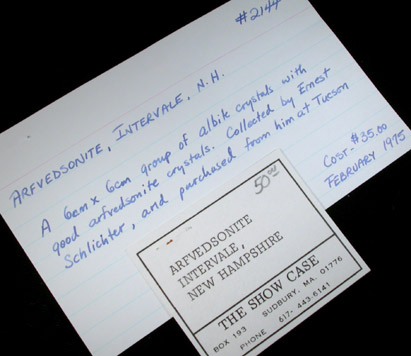 #2144
ARFVEDSONITE, INTERVALE, N.H.
A 6cm x 6cm group of albite crystals with
good arfvedsonite crystals. Collected by Ernest
Schlichter, and purchased from him at Tucson
COST-$35.00
FEBRUARY 1975
50.00
ARFVEDSONITE
INTERVALE,
NEW HAMPSHIRE
THE SHOW CASE
BOX 193 SUDBURY, MA. 01776
PHONE 617-443-6141